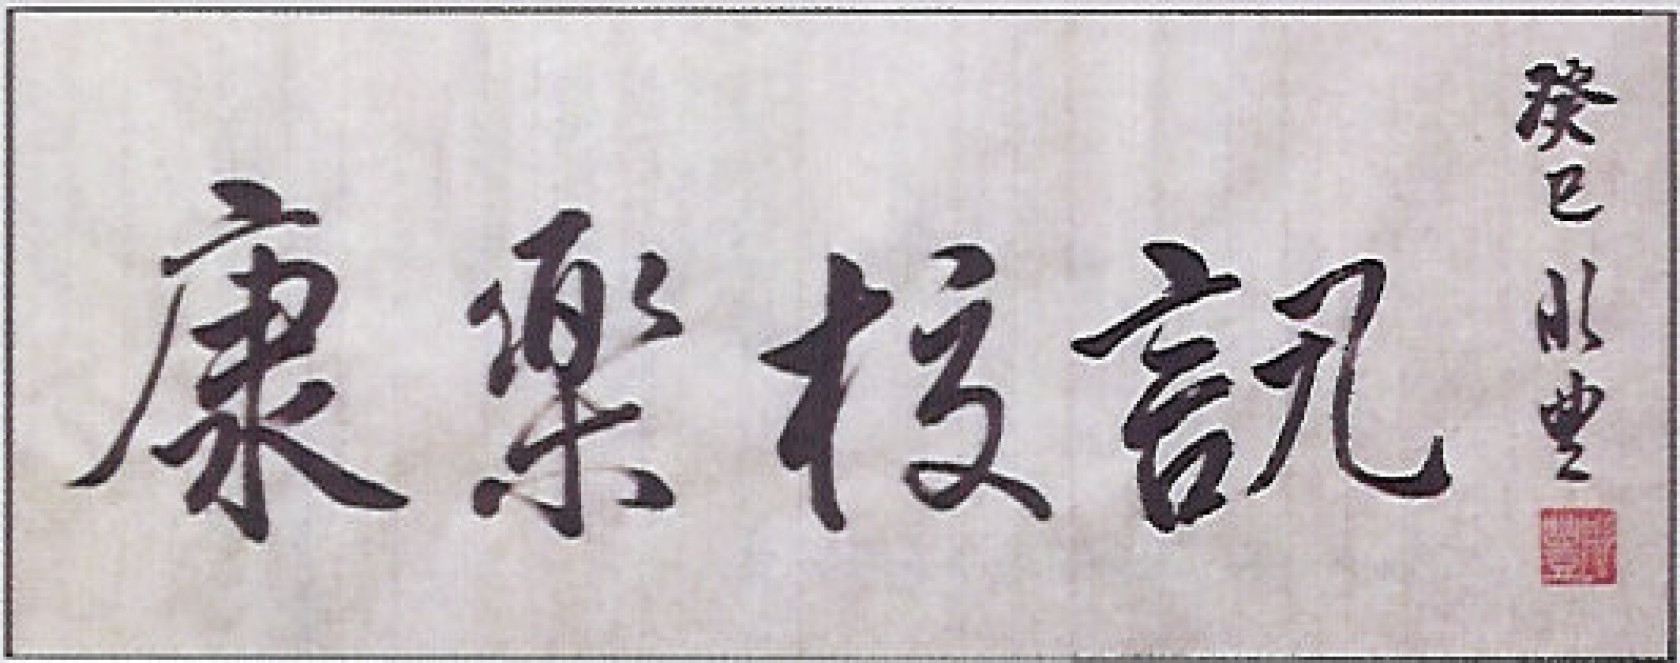 康樂校訊
癸巳 明豐